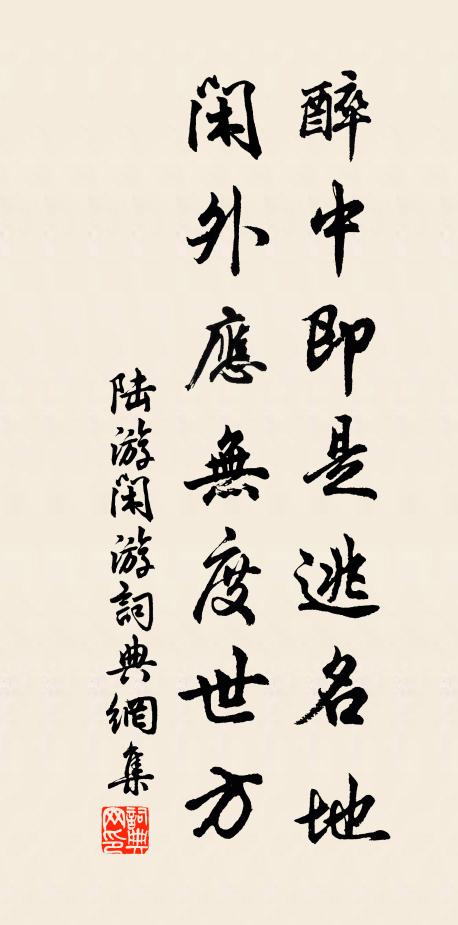 醉中即是逃名地
閑外應無度世方
陆游閑游詞典網集
詞典网印